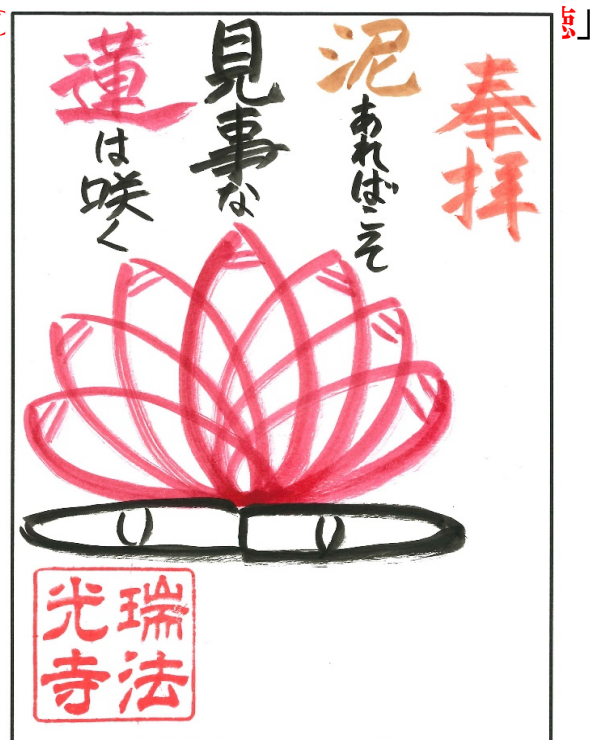 奉拝
泥あればこそ
見事な
蓮は咲く
瑞法
光寺
」